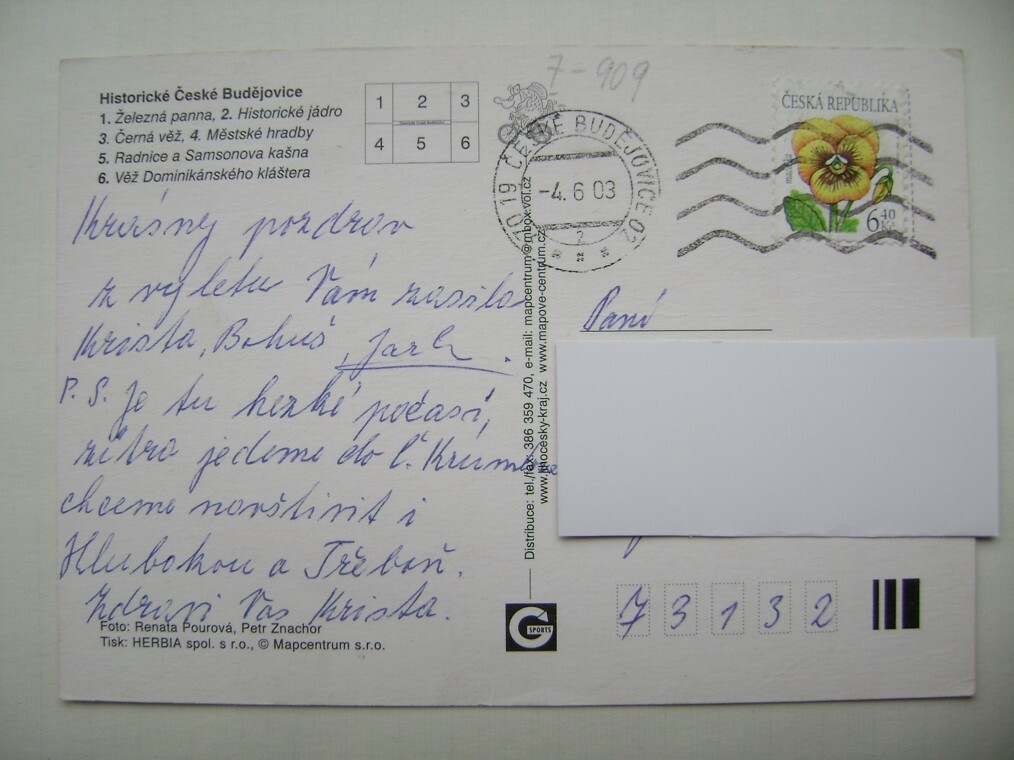 7-909
Historické České Budějovice
1. Železná panna, 2. Historické jádro
3. Černá věž, 4. Městské hradby
5. Radnice a Samsonova kašna
6. Věž Dominikánského kláštera
1 2 3
4 5 6
370 19 ČESKÉ BUDĚJOVICE 02
-4. 6 03
2
ČESKÁ REPUBLIKA
6 40
Kč
Krásný pozdrav
z výletu Vám zasílá
Krista, Bohuš,
P. S. Je tu hezké počasí,
zítra jedeme do Č. Krumlova
chceme navštívit i
Hlubokou a Třeboň.
Zdraví Vás Krista.
Foto: Renata Pourová, Petr Znachor
Tisk: HERBIA spol. s r.o., © Mapcentrum s.r.o.
Distribuce: tel./fax: 386 359 470, e-mail: mapcentrum@mbox.vol.cz
www.jihocesky-kraj.cz www.mapove-centrum.cz
G SPORTS
Paní
7 3 1 3 2